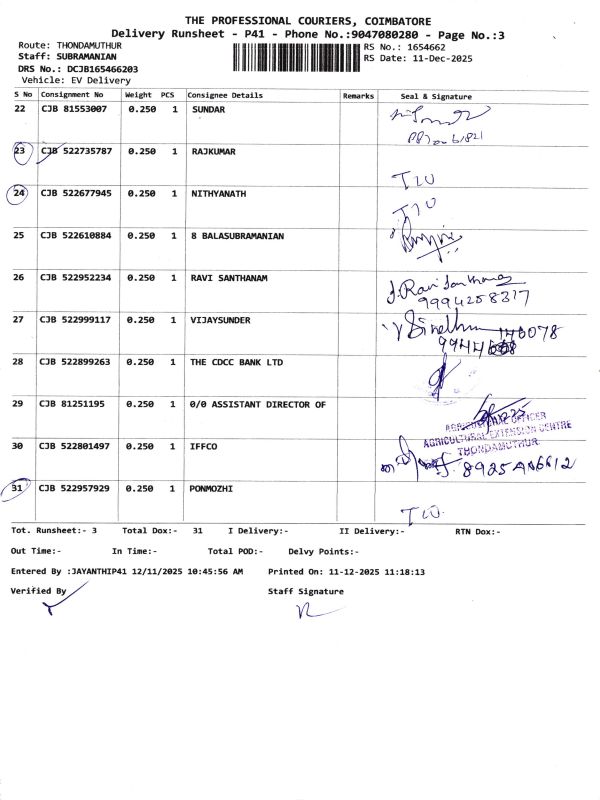 THE PROFESSIONAL COURIERS, COIMBATORE
Delivery Runsheet - P41 - Phone No.:9047080280 - Page No.:3
Route: THONDAMUTHUR
RS No.: 1654662
Staff: SUBRAMANIAN
RS Date: 11-Dec-2025
DRS No.: DCJB165466203
Vehicle: EV Delivery
S No Consignment No Weight PCS Consignee Details Remarks Seal & Signature
22 CJB 81553007 0.250 1 SUNDAR
23 CJB 522735787 0.250 1 RAJKUMAR
24 CJB 522677945 0.250 1 NITHYANATH
25 CJB 522610884 0.250 1 8 BALASUBRAMANIAN
26 CJB 522952234 0.250 1 RAVI SANTHANAM J. Ravi Santhanam
9994258317
27 CJB 522999117 0.250 1 VIJAYSUNDER
28 CJB 522899263 0.250 1 THE CDCC BANK LTD
29 CJB 81251195 0.250 1 0/0 ASSISTANT DIRECTOR OF
AGRICULTURAL OFFICER
AGRICULTURAL EXTENSION CENTRE
THONDAMUTHUR
30 CJB 522801497 0.250 1 IFFCO
31 CJB 522957929 0.250 1 PONMOZHI
Tot. Runsheet:- 3 Total Dox:- 31 I Delivery:- II Delivery:- RTN Dox:-
Out Time:- In Time:- Total POD:- Delvy Points:-
Entered By :JAYANTHIP41 12/11/2025 10:45:56 AM Printed On: 11-12-2025 11:18:13
Verified By Staff Signature